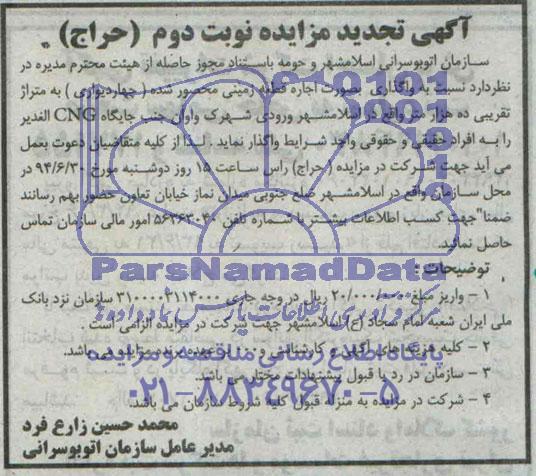 آگهی تجدید مزایده نوبت دوم (حراج)
سازمان اتوبوسرانی اسلامشهر و حومه باستناد مجوز حاصله از هیئت محترم مدیره در
نظردارد نسبت به واگذاری بصورت اجاره قطعه زمینی محصور شده (چهاردیواری) به متراژ
تقریبی ده هزار متر واقع در اسلامشهر ورودی شهرک واوان جنب جایگاه CNG الغدیر
را به افراد حقیقی و حقوقی واجد شرایط واگذار نماید . لذا از کلیه متقاضیان دعوت بعمل
می آید جهت شرکت در مزایده (حراج) راس ساعت ۱۵ روز دوشنبه مورخ ۹۴/۶/۳۰ در
محل سازمان واقع در اسلامشهر ضلع جنوبی میدان نماز خیابان تعاون حضور بهم رسانند
ضمنا" جهت کسب اطلاعات بیشتر با شماره تلفن ۵۶۳۶۳۰۴۰ امور مالی سازمان تماس
حاصل نمائید.
توضیحات :
۱ - واریز مبلغ ۲۰/۰۰۰/۰۰۰ ریال در وجه جاری ۳۱۰۰۰۰۳۱۱۴۰۰۰ سازمان نزد بانک
ملی ایران شعبه امام سجاد (ع) اسلامشهر جهت شرکت در مزایده الزامی است .
۲ - کلیه هزینه های آگهی و کارشناسی و ... به عهده برنده مزایده می باشد.
۳ - سازمان در رد یا قبول پیشنهادات مختار می باشد.
۴ - شرکت در مزایده به منزله قبول کلیه شروط سازمان می باشد.
محمد حسین زارع فرد
مدیر عامل سازمان اتوبوسرانی
ParsNamadData
پایگاه اطلاع رسانی مناقصه و مزایده
۰۲۱-۸۸۳۴۹۶۷۰-۵